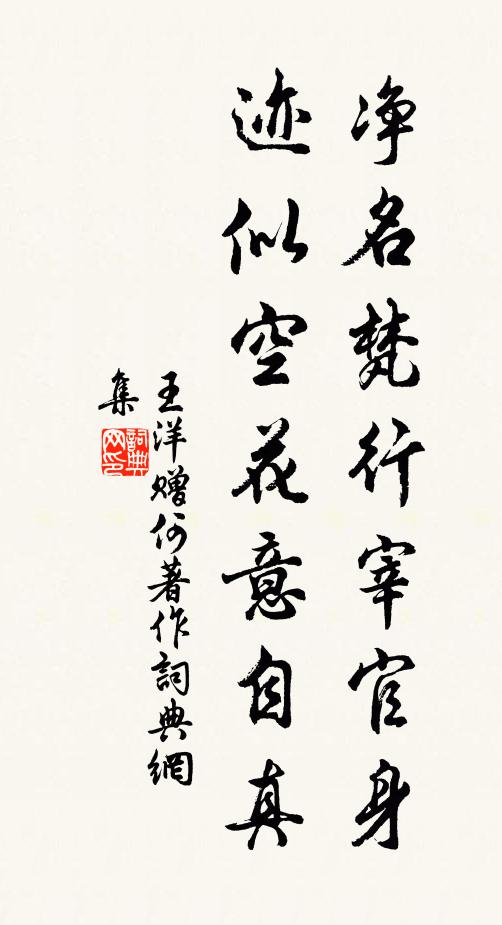 净名梵行宰官身
迹似空花意自真
王洋赠何著作詞典網
集
詞典
网印